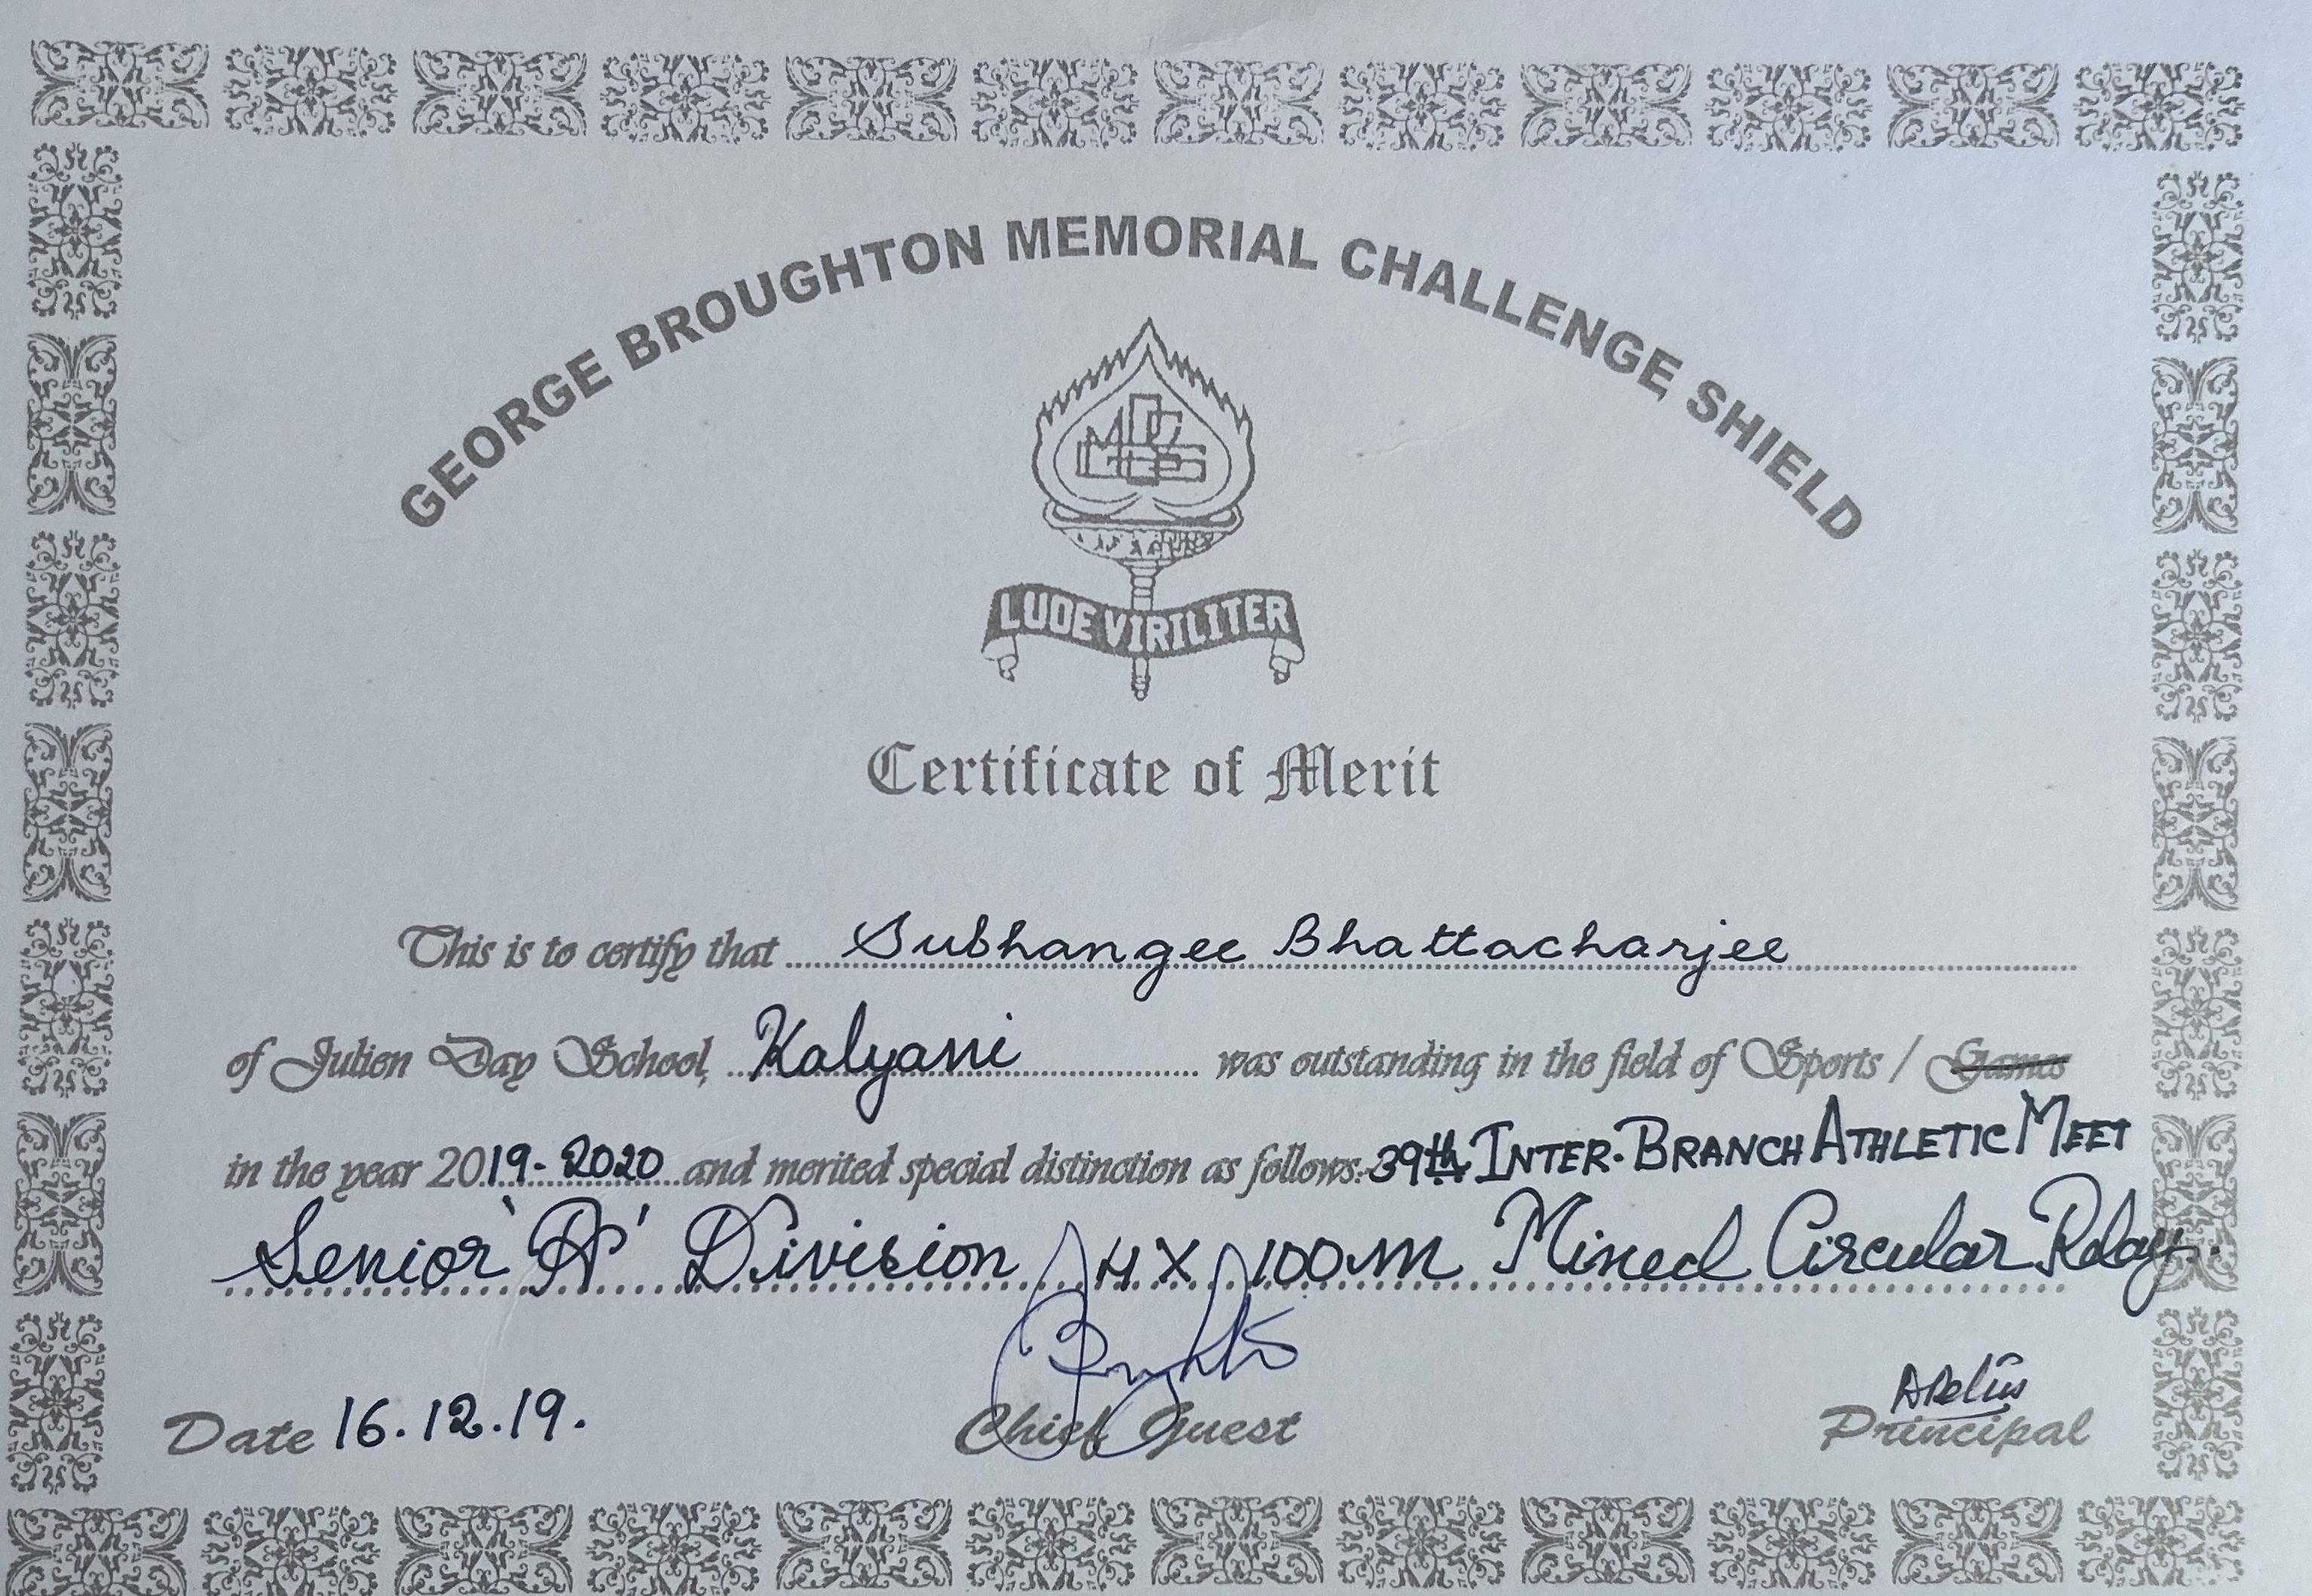 GEORGE BROUGHTON MEMORIAL CHALLENGE SHIELD
LUDE VIRILITER
Certificate of Merit
This is to certify that Subhangee Bhattacharjee
of Julien Day School, Kalyani was outstanding in the field of Sports / Games
in the year 2019-2020 and merited special distinction as follows: 39th INTER-BRANCH ATHLETIC MEET
Senior 'A' Division 4 X 100m Mixed Circular Relay.
Date 16.12.19.
Chief Guest
Principal